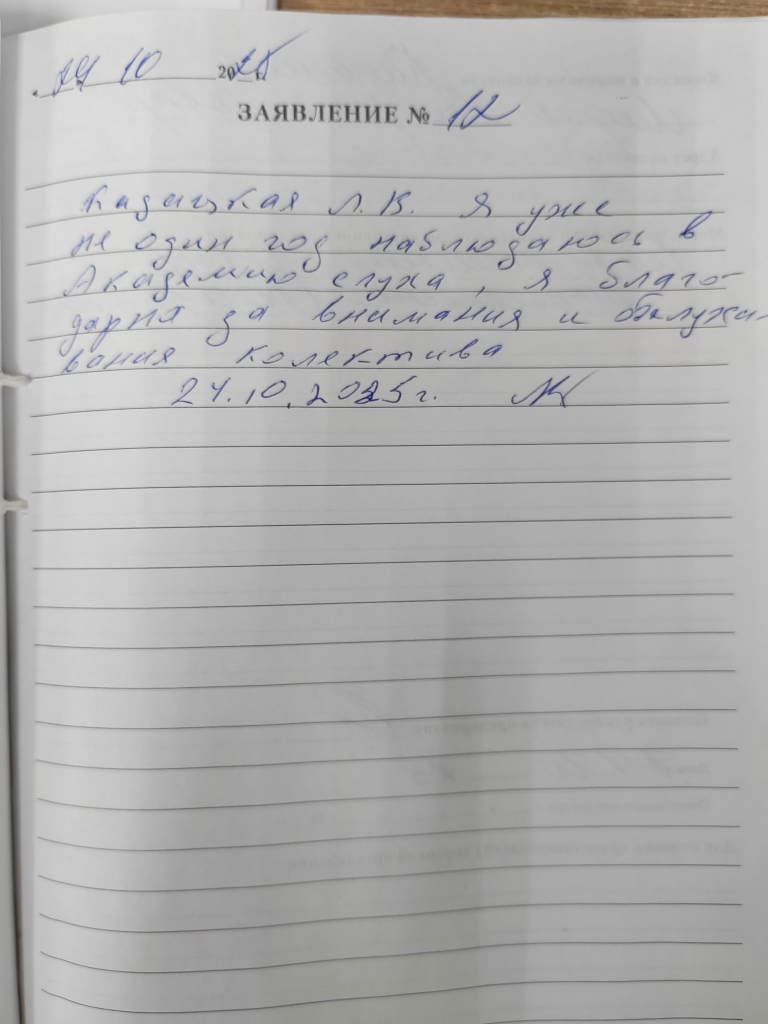 24 10 2025 г.
ЗАЯВЛЕНИЕ № 12
Л. В. Я уже
не один год наблюдаюсь в
Академию слуха, я благо-
дарна за внимания и обслужи-
вания колектива
24.10.2025 г.